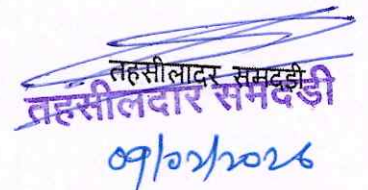 तहसीलादर समदडी
तहसीलदार समदडी
09/02/2026